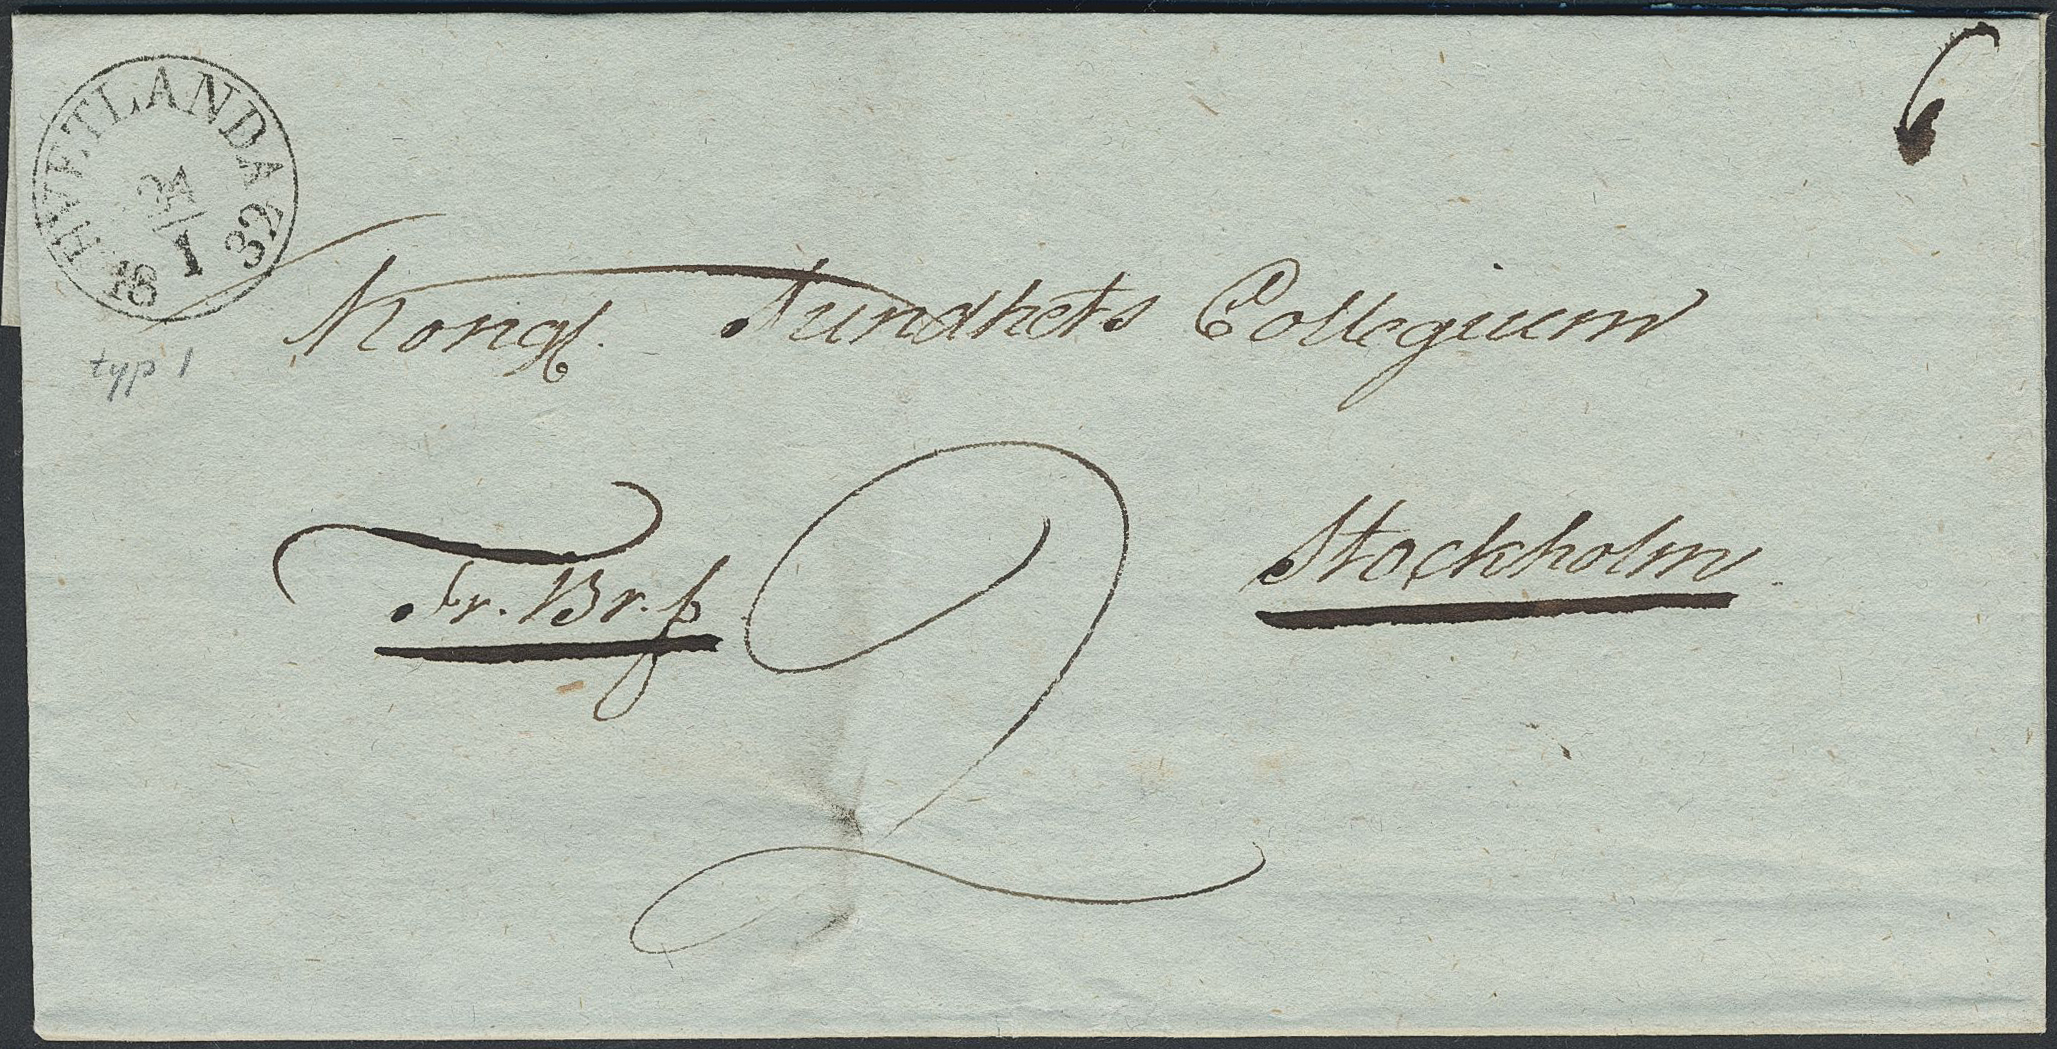 HVETLANDA
24
1
18 32
typ 1
6
Kongl. Sundhets Collegium
Stockholm
Fr. Br. f
2